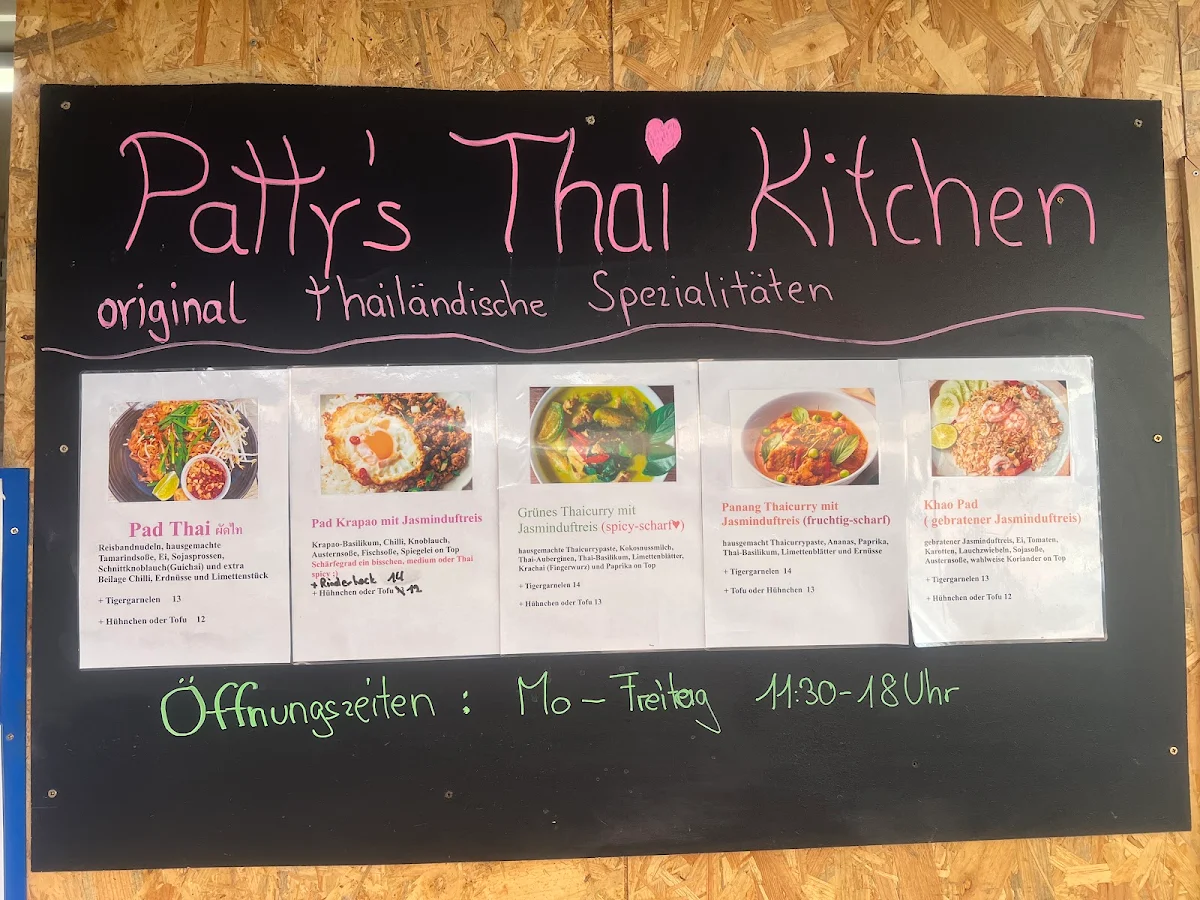 Patty's Thai Kitchen
original Thailändische Spezialitäten
Pad Thai ผัดไท
Reisbandnudeln, hausgemachte
Tamarindsoße, Ei, Sojasprossen,
Schnittknoblauch(Guichai) und extra
Beilage Chilli, Erdnüsse und Limettenstück
+ Tigergarnelen 13
+ Hühnchen oder Tofu 12
Pad Krapao mit Jasminduftreis
Krapao-Basilikum, Chilli, Knoblauch,
Austernsoße, Fischsoße, Spiegelei on Top
Schärfegrad ein bisschen, medium oder Thai
spicy :)
+ Rinderhack 14
+ Hühnchen oder Tofu 12
Grünes Thaicurry mit
Jasminduftreis (spicy-scharf♥)
hausgemachte Thaicurrypaste, Kokosnussmilch,
Thai-Auberginen, Thai-Basilikum, Limettenblätter,
Krachai (Fingerwurz) und Paprika on Top
+ Tigergarnelen 14
+ Hühnchen oder Tofu 13
Panang Thaicurry mit
Jasminduftreis (fruchtig-scharf)
hausgemacht Thaicurrypaste, Ananas, Paprika,
Thai-Basilikum, Limettenblätter und Ernüsse
+ Tigergarnelen 14
+ Tofu oder Hühnchen 13
Khao Pad
( gebratener Jasminduftreis)
gebratener Jasminduftreis, Ei, Tomaten,
Karotten, Lauchzwiebeln, Sojasoße,
Austernsoße, wahlweise Koriander on Top
+ Tigergarnelen 13
+ Hühnchen oder Tofu 12
Öffnungszeiten : Mo – Freitag 11:30-18 Uhr